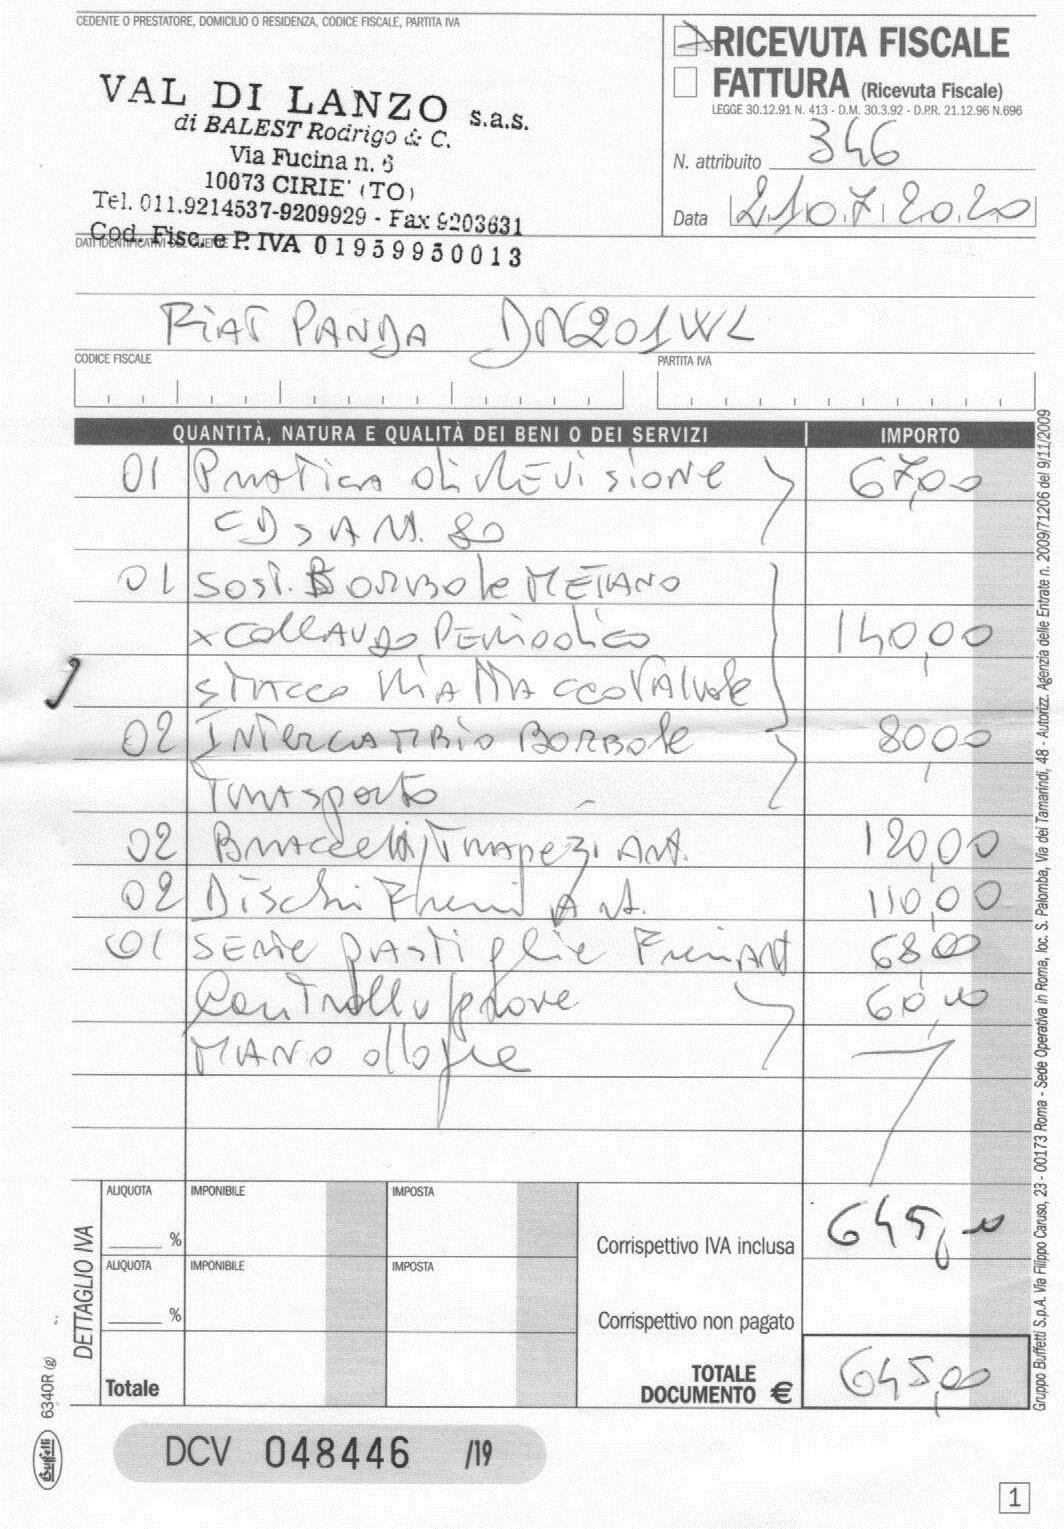 CEDENTE O PRESTATORE, DOMICILIO O RESIDENZA, CODICE FISCALE, PARTITA IVA
VAL DI LANZO s.a.s.
di BALEST Rodrigo & C.
Via Fucina n. 6
10073 CIRIE' (TO)
Tel. 011.9214537-9209929 - Fax 9203631
Cod. Fisc. e P. IVA 01959950013
RICEVUTA FISCALE
FATTURA (Ricevuta Fiscale)
LEGGE 30.12.91 N. 413 - D.M. 30.3.92 - D.P.R. 21.12.96 N.696
N. attribuito 346
Data 21.07.2020
DATI IDENTIFICATIVI DEL CLIENTE
FIAT PANDA DN201WL
CODICE FISCALE PARTITA IVA
QUANTITÀ, NATURA E QUALITÀ DEI BENI O DEI SERVIZI IMPORTO
01 Pratica di Revisione 67,00
CDS ART. 80
01 Sost. Bombole METANO
x Collaudo Periodico 140,00
stacco Riattacco Valvole
02 Intercambio Bombole 80,00
Trasporto
02 Braccetti/Trapezi Ant. 120,00
02 Dischi Freni Ant. 110,00
01 Serie pastiglie Freni Ant 68,00
Controllo/prove 60,00
MANO d'opera
DETTAGLIO IVA
ALIQUOTA IMPONIBILE IMPOSTA
%
Corrispettivo IVA inclusa 645,00
ALIQUOTA IMPONIBILE IMPOSTA
%
Corrispettivo non pagato
Totale
TOTALE DOCUMENTO € 645,00
DCV 048446 /19
1
Buffetti
6340R (g)
Gruppo Buffetti S.p.A. Via Filippo Caruso, 23 - 00173 Roma - Sede Operativa in Roma, loc. S. Palomba, Via dei Tamarindi, 48 - Autorizz. Agenzia delle Entrate n. 2009/71206 del 9/11/2009